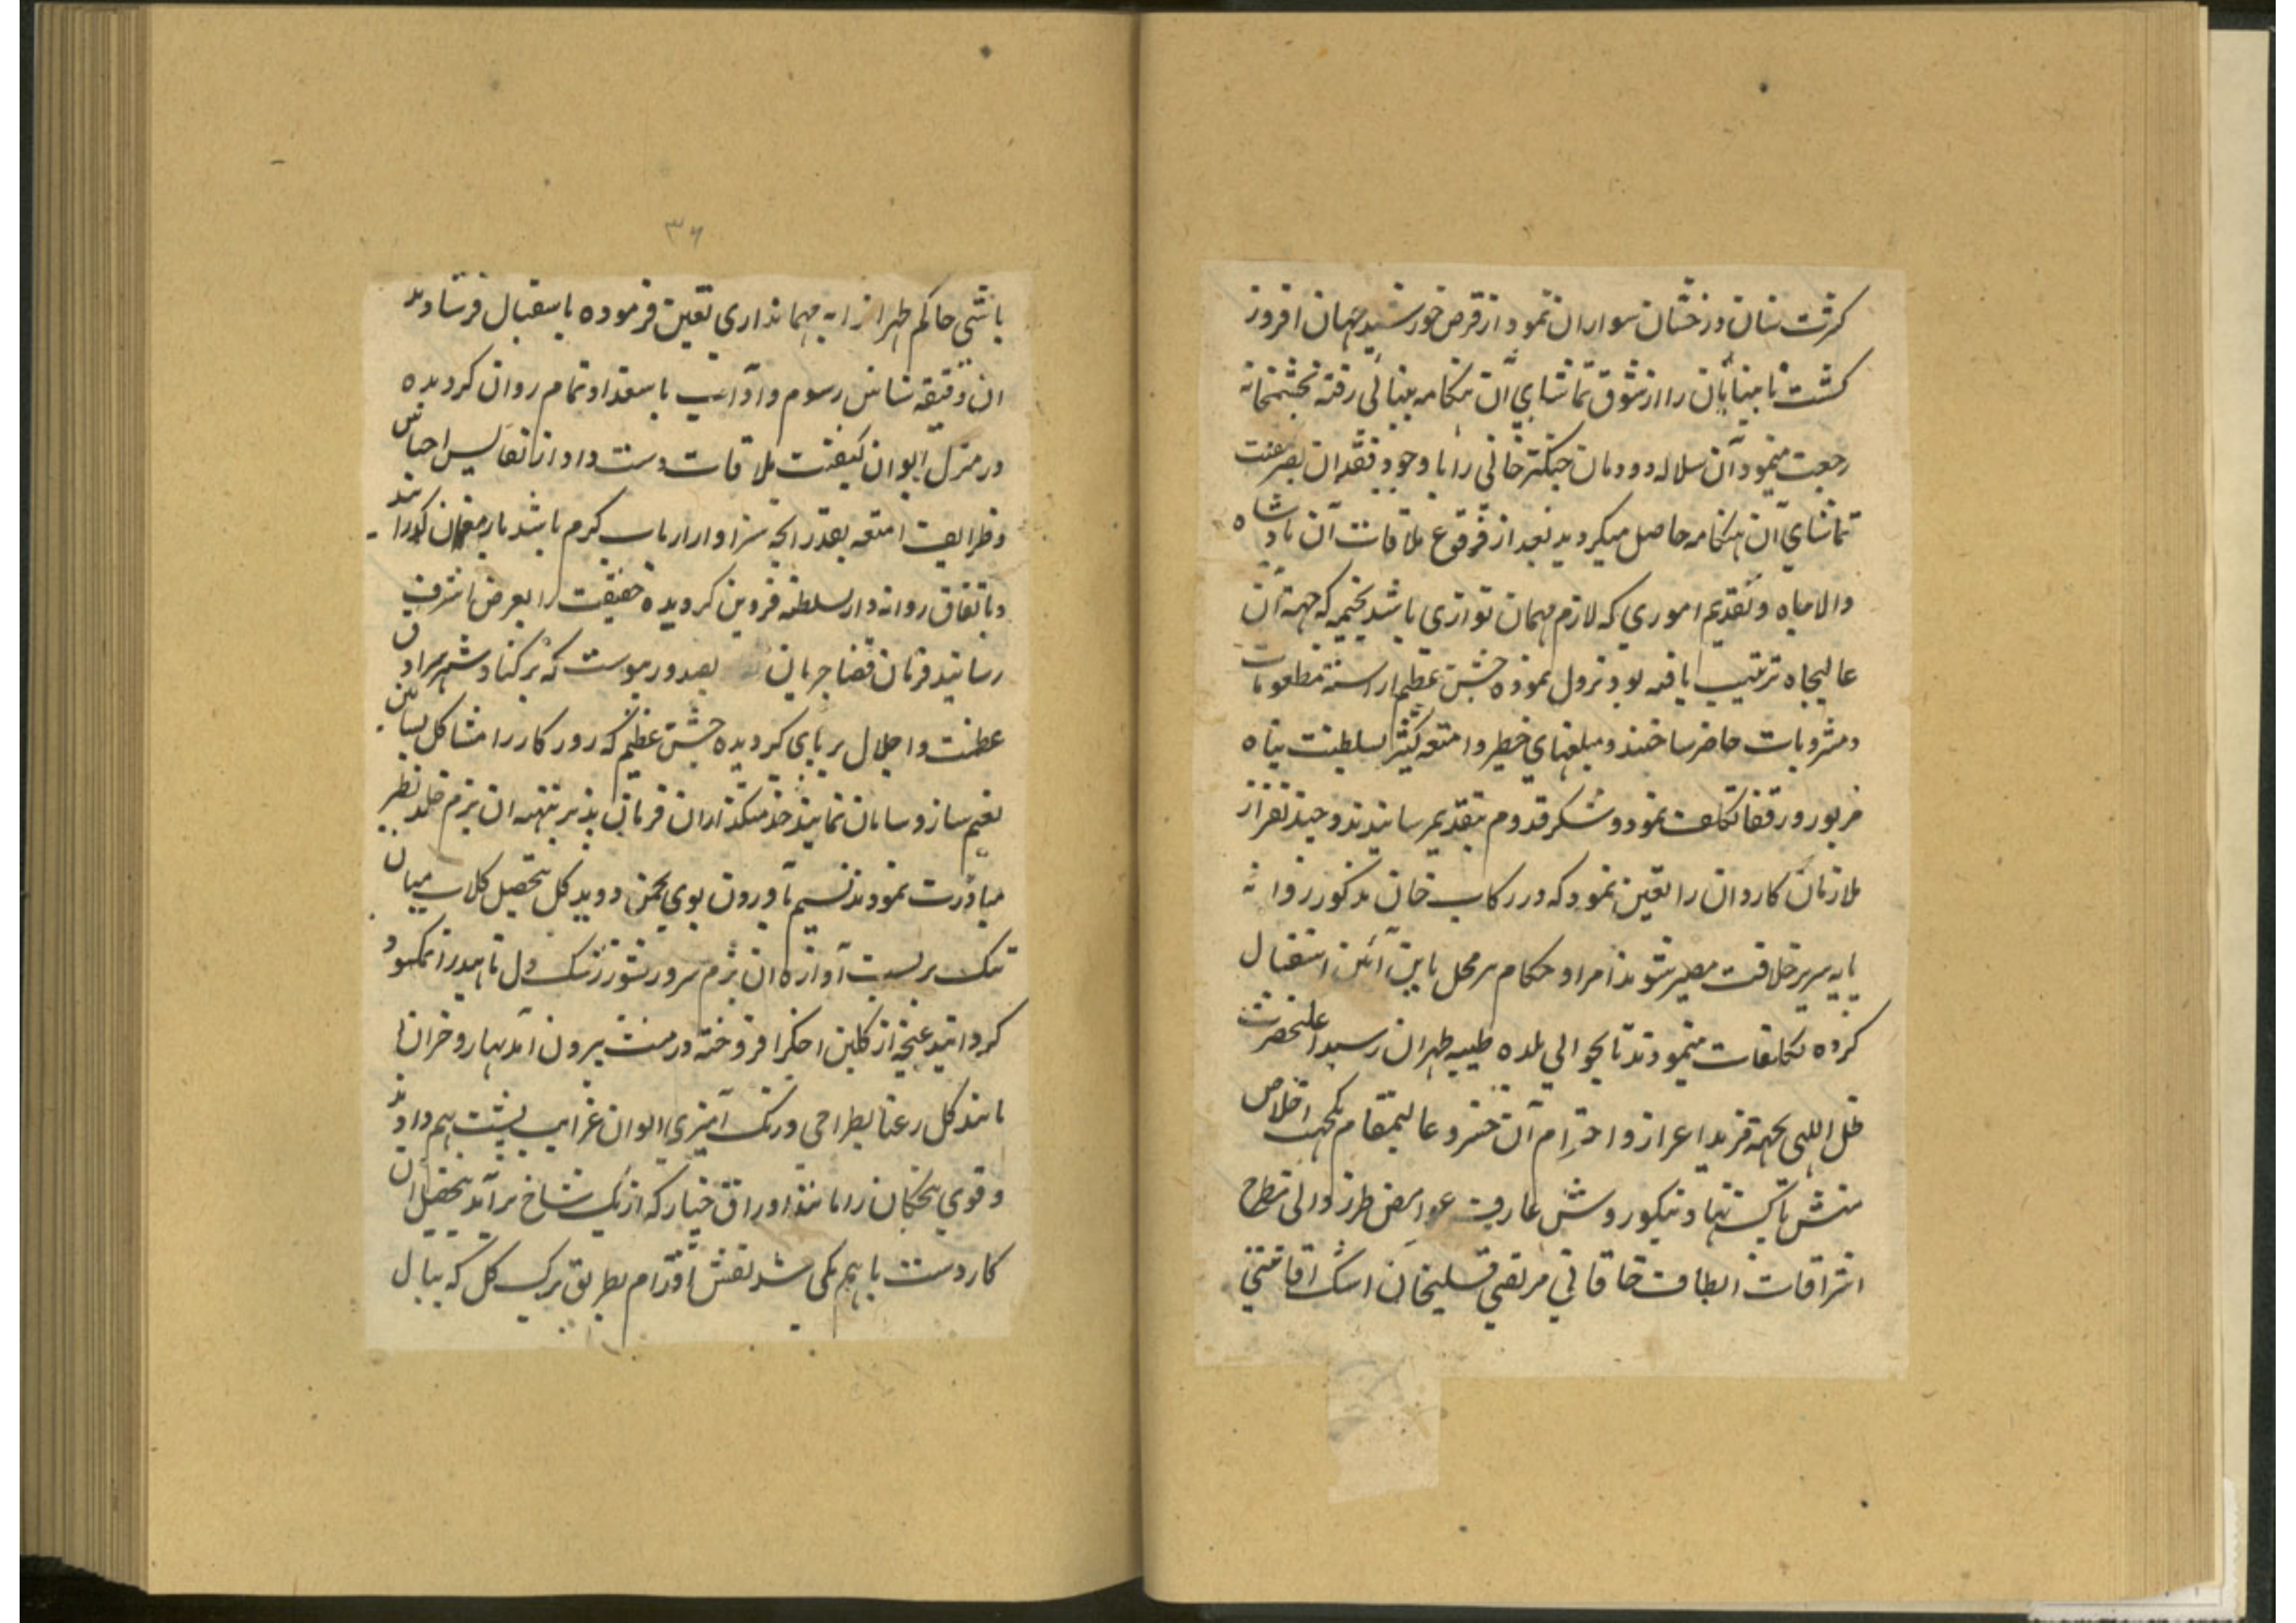 کثرت سنان درخشان سواران نمودار قرص خورشید جهان افروز
کشت نابینایان را از شوق تماشای آن هنکامه بینائی رفته بچشمخانه
رجعت مینمود آن سلاله دودمان چنکیز خانی را با وجود فقدان بصر
تماشای آن هنکامه حاصل میکردید بعد از وقوع ملاقات آن پادشاه
والاجاه و تقدیم اموری که لازم مهمان نوازی باشد بخیمه که جهة آن
عالیجاه ترتیب یافته بود نزول نموده جشن عظیم اراسته مطعومات
و مشروبات حاضر ساختند و مبلغهای خطیر و امتعه کثیر بسلطنت پناه
مزبور و رفقا تکلیف نمود و شکر قدوم بتقدیم رسانیدند و چند نفر از
ملازمان کاردان را تعیین نمود که در رکاب خان مذکور روانه
پایه سریر خلافت مصیر شوند امرا و حکام هر محل باین آئین استقبال
کرده تکلیفات مینمودند تا بحوالی بلده طیبه طهران رسید اعلیحضرت
ظل اللهی بجهة مزید اعزاز و احترام آن خسرو عالیمقام بجهت اخلاص
منش پاکیزه نهاد نیکو روش عارف عوارض طرز والی مطرح
اشراقات الطاف خاقانی مرتضی قلیخان ایشک اقاسی
۳۶
باشی حاکم طهران را به مهمانداری تعیین فرموده باستقبال فرستادند
ان دقیقه شناس رسوم و آداب باستعداد تمام روان کردیده
در منزل ایوان کیفیت ملاقات دست داد و از نفایس اجناس
و ظرایف امتعه بقدر انچه سزاوار ارباب کرم باشد بارمغان کذرانید
و باتفاق روانه دار السلطنه قزوین کردیده حقیقت را بعرض اشرف
رسانید فرمان قضا جریان بصدور پیوست که در کنار شهر سرادق
عظمت و اجلال بر پای کردیده جشن عظیم که روزکار را مشاکل بساتین
نعیم ساز و سامان نمایند خدمتکذاران فرمان پذیر بتهیه ان بزم خلد نظیر
مبادرت نمودند نسیم بآوردن بوی بچمن دوید کل بتحصیل کلاب میان
تنک بر بست آوازه ان بزم سرور شور زنک دل ناهید را نمکسود
کردانید غنچه از کلبن اخکر افروخته در منقل بیرون آمد بهار و خزان
مانند کل رعنا بطراحی و رنک آمیزی الوان غرایب پشت بهم دادند
و قوی پنجکان را مانند اوراق خیار که از یک شاخ بر آید بتحصیل ان
کار دست با هم یکی شد نقش اقدام بطریق برک کل که ببال